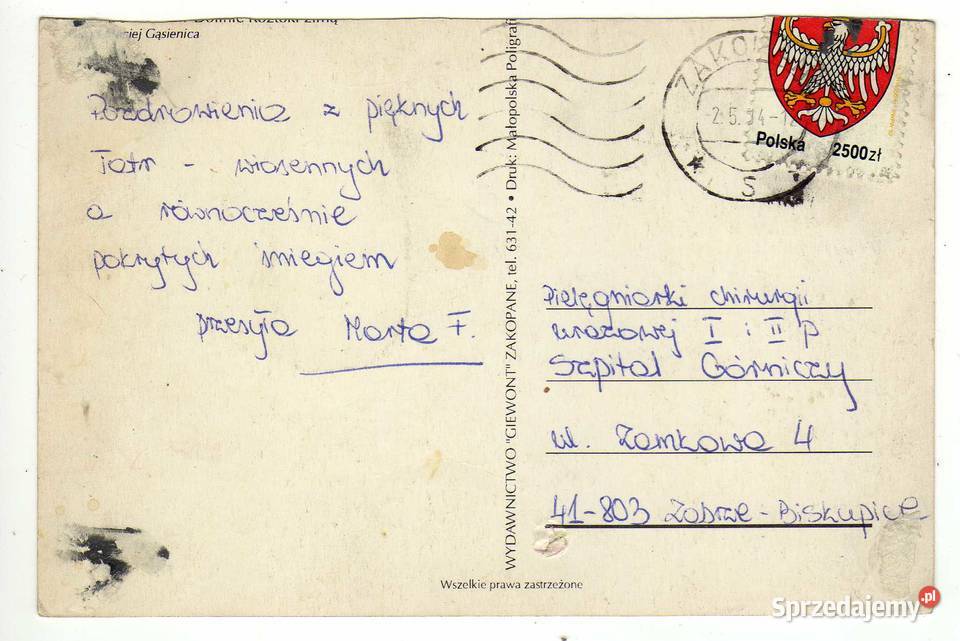 Dolinie Roztoki zimą
Gąsienica
Pozdrowienia z pięknych
Tatr - wiosennych
a równocześnie
pokrytych śniegiem
przesyła Marta F.
WYDAWNICTWO "GIEWONT" ZAKOPANE, tel. 631-42 • Druk: Małopolska Poligrafi
2.5.94-12
Polska 2500zł
S
Pielęgniarki chirurgii
urazowej I i II p
Szpital Górniczy
ul. Zamkowa 4
41-803 Zabrze - Biskupice
Wszelkie prawa zastrzeżone
Sprzedajemy.pl